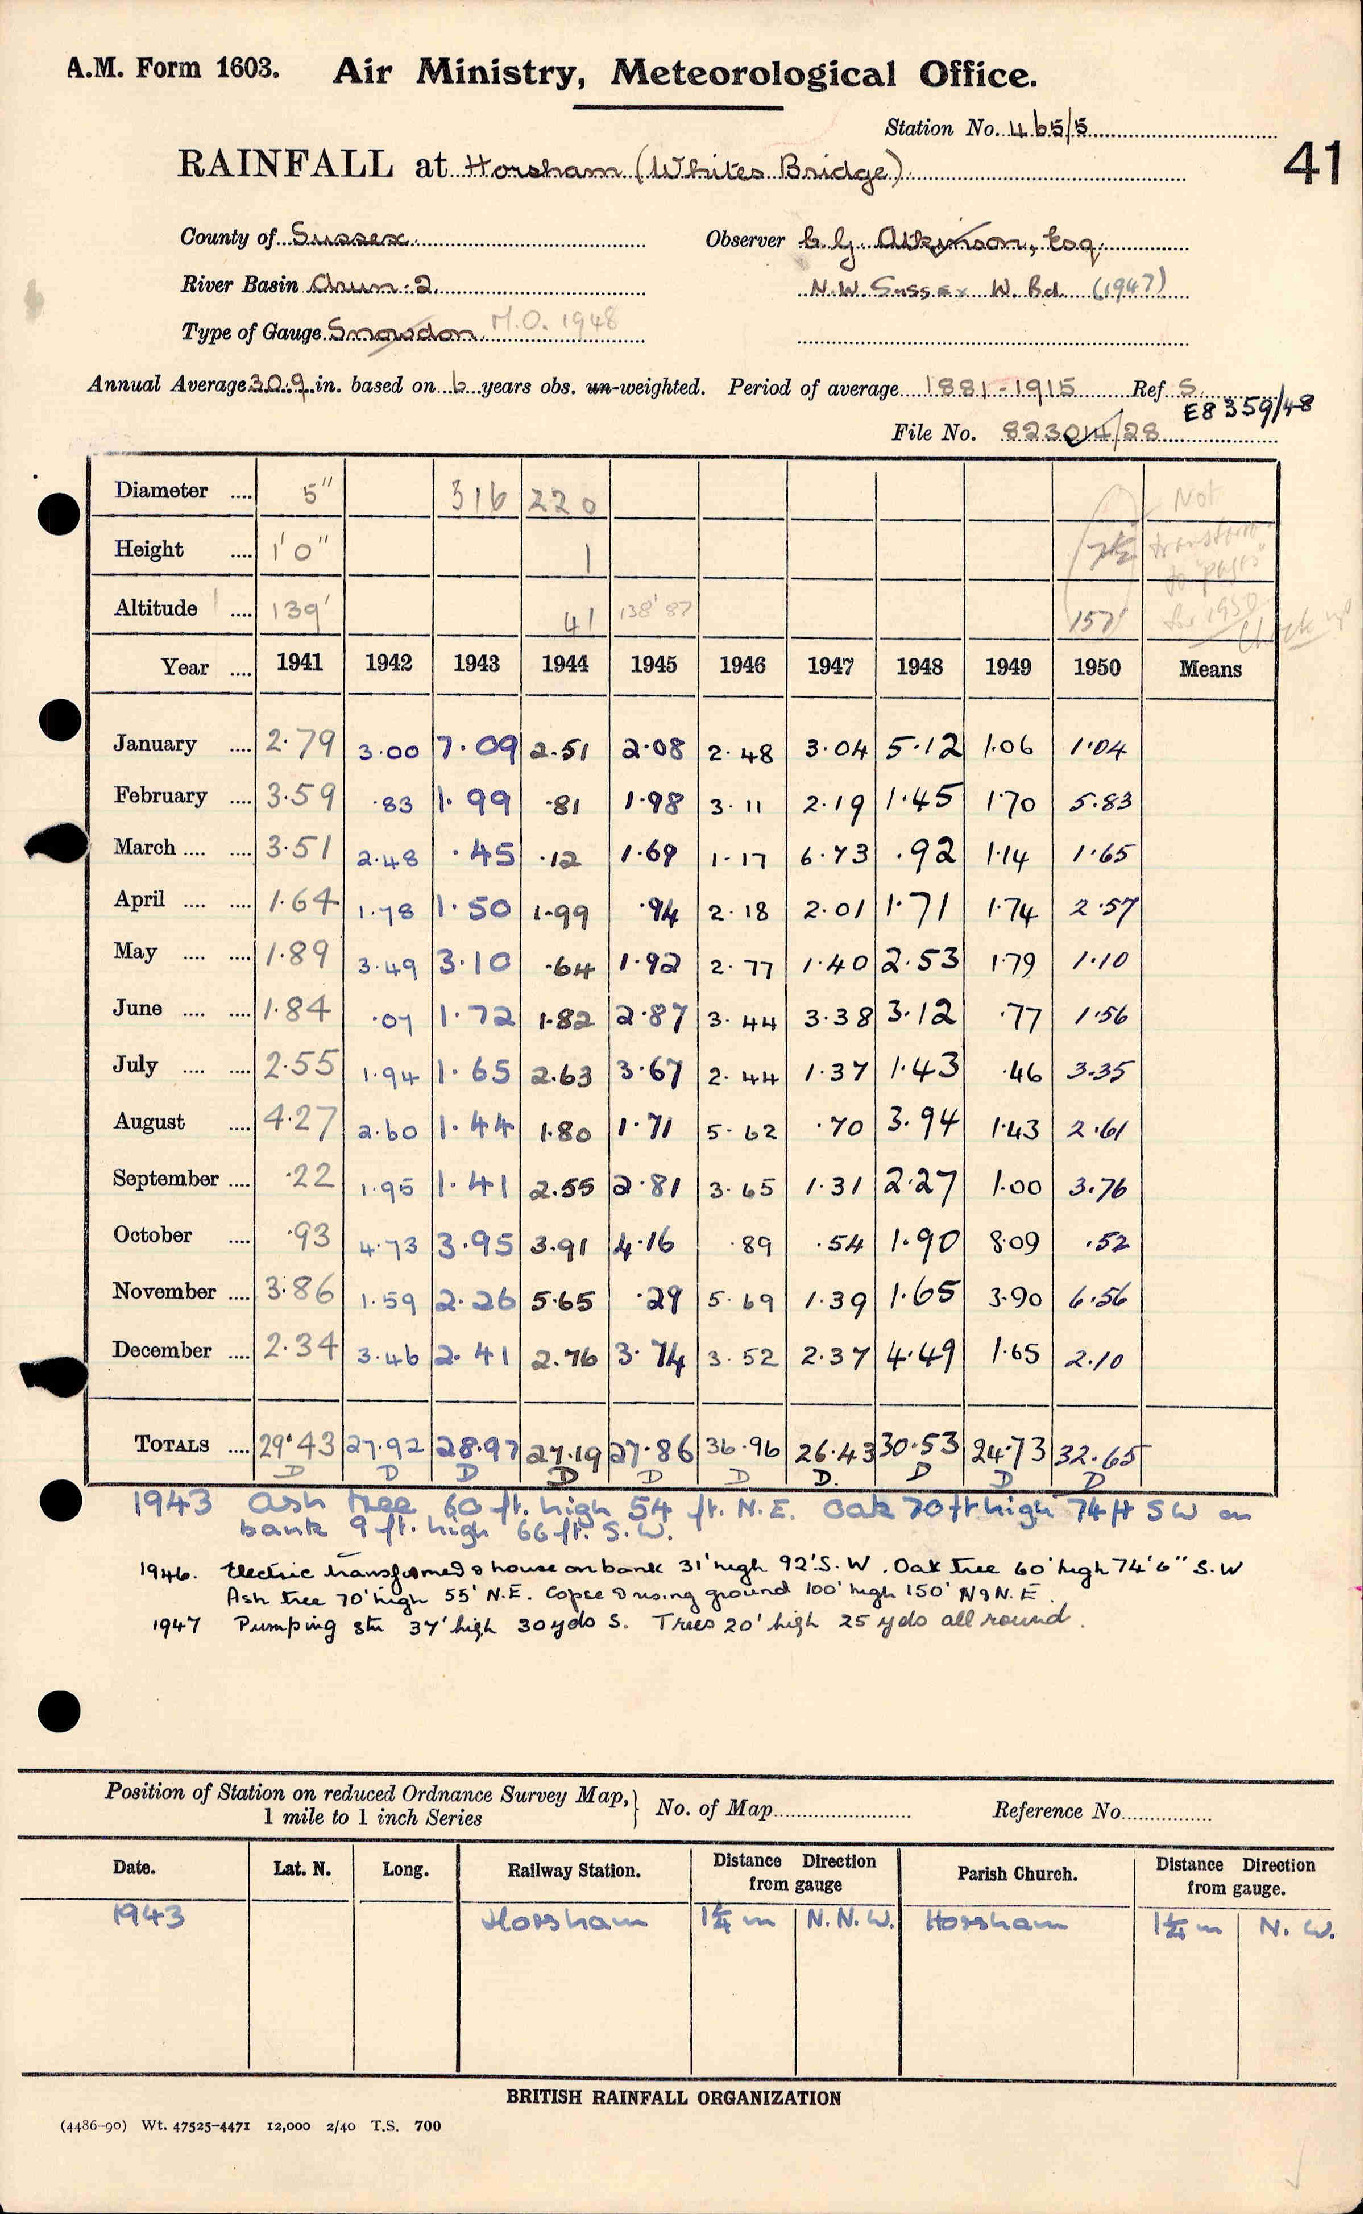 A.M. Form 1603. Air Ministry, Meteorological Office.
Station No. 465/5
41
RAINFALL at Horsham (Whites Bridge)
County of Sussex Observer C. G. Atkinson, Esq.
River Basin Arun. 2. N.W. Sussex W. Bd. (1947)
Type of Gauge Snowdon M.O. 1948
Annual Average 30.9 in. based on 6 years obs. un-weighted. Period of average 1881-1915 Ref S.
E8359/48
File No. 823014/28
Diameter .... 5" 316 220 Not
Height .... 1'0" 1 transferred
to "pages"
Altitude .... 139' 41 138' 87 157 for 1950
Check up
Year .... 1941 1942 1943 1944 1945 1946 1947 1948 1949 1950 Means
January .... 2.79 3.00 7.09 2.51 2.08 2.48 3.04 5.12 1.06 1.04
February .... 3.59 .83 1.99 .81 1.98 3.11 2.19 1.45 1.70 5.83
March .... .... 3.51 2.48 .45 .12 1.69 1.17 6.73 .92 1.14 1.65
April .... .... 1.64 1.78 1.50 1.99 .94 2.18 2.01 1.71 1.74 2.57
May .... .... 1.89 3.49 3.10 .64 1.92 2.77 1.40 2.53 1.79 1.10
June .... .... 1.84 .07 1.72 1.82 2.87 3.44 3.38 3.12 .77 1.56
July .... .... 2.55 1.94 1.65 2.63 3.67 2.44 1.37 1.43 .46 3.35
August .... 4.27 2.60 1.44 1.80 1.71 5.62 .70 3.94 1.43 2.61
September .... .22 1.95 1.41 2.55 2.81 3.65 1.31 2.27 1.00 3.76
October .... .93 4.73 3.95 3.91 4.16 .89 .54 1.90 8.09 .52
November .... 3.86 1.59 2.26 5.65 .29 5.69 1.39 1.65 3.90 6.56
December .... 2.34 3.46 2.41 2.76 3.74 3.52 2.37 4.49 1.65 2.10
TOTALS .... 29.43 27.92 28.97 27.19 27.86 36.96 26.43 30.53 24.73 32.65
D D D D D D D. D D D
1943 Ash tree 60 ft. high 54 ft. N.E. Oak 70 ft high 74 ft SW on
bank 9 ft. high 66 ft. S.W.
1946. Electric transformed & house on bank 31' high 92' S.W. Oak tree 60' high 74'6" S.W
Ash tree 70' high 55' N.E. Copse & rising ground 100' high 150' N & N.E.
1947 Pumping stn 37' high 30 yds S. Trees 20' high 25 yds all round.
Position of Station on reduced Ordnance Survey Map, } No. of Map Reference No.
1 mile to 1 inch Series
Date. Lat. N. Long. Railway Station. Distance Direction from gauge Parish Church. Distance Direction from gauge.
1943 Horsham 1¼ m N.N.W. Horsham 1¼ m N.W.
BRITISH RAINFALL ORGANIZATION
(4486-90) Wt. 47525-4471 12,000 2/40 T.S. 700